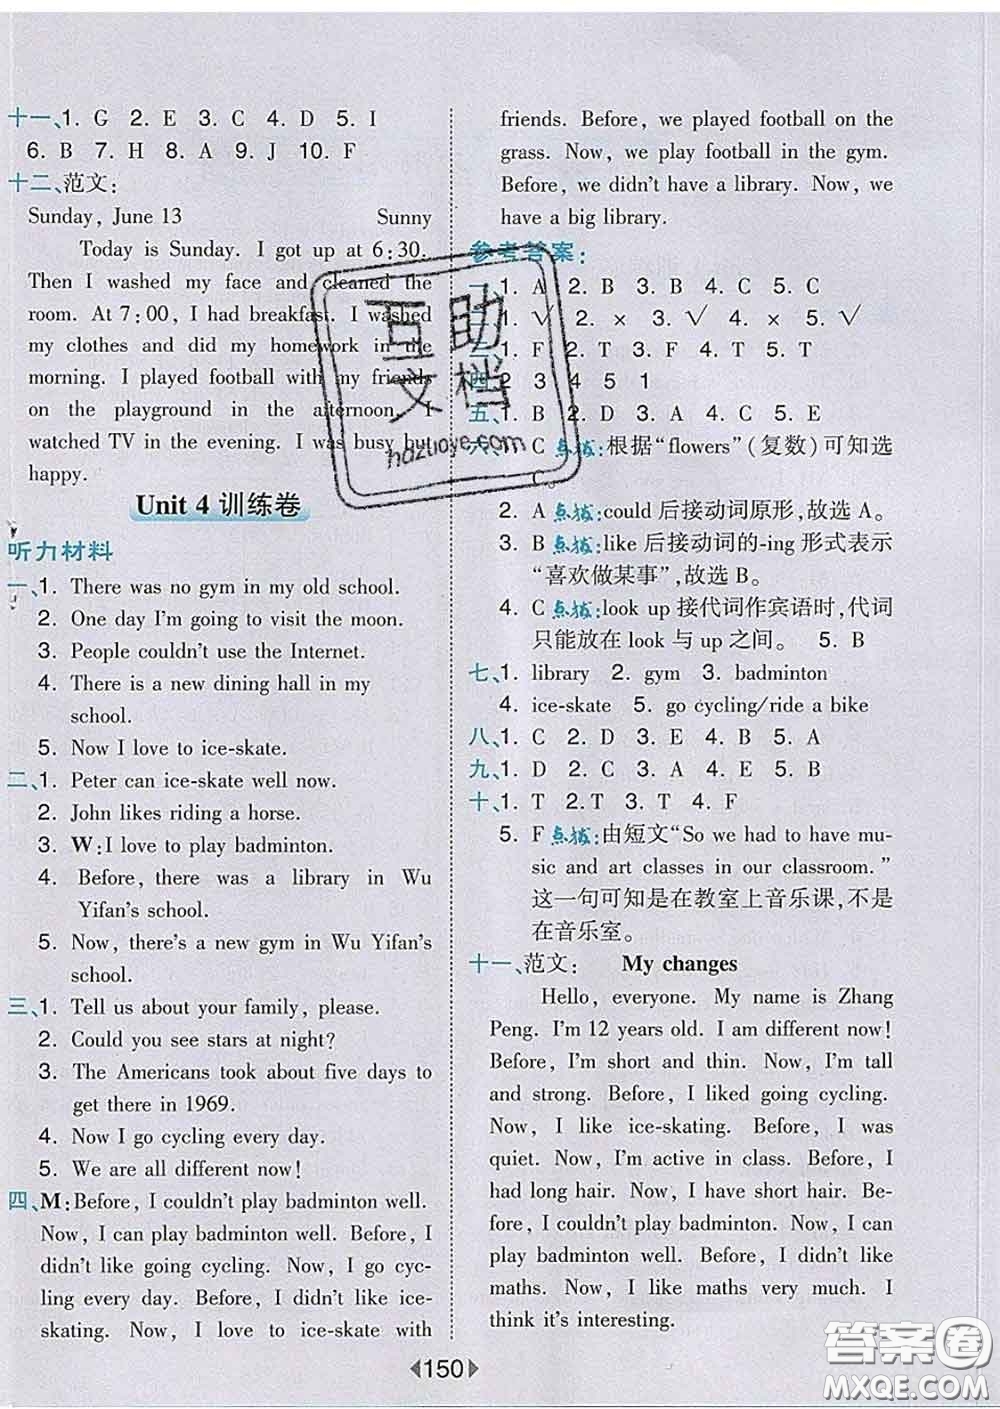 十一、1. G 2. E 3. C 4. D 5. I
6. B 7. H 8. A 9. J 10. F
十二、范文：
Sunday, June 13 Sunny
Today is Sunday. I got up at 6:30.
Then I washed my face and cleaned the
room. At 7:00, I had breakfast. I washed
my clothes and did my homework in the
morning. I played football with my friends
on the playground in the afternoon. I
watched TV in the evening. I was busy but
happy.
Unit 4 训练卷
听力材料
一、1. There was no gym in my old school.
2. One day I'm going to visit the moon.
3. People couldn't use the Internet.
4. There is a new dining hall in my
school.
5. Now I love to ice-skate.
二、1. Peter can ice-skate well now.
2. John likes riding a horse.
3. W: I love to play badminton.
4. Before, there was a library in Wu
Yifan's school.
5. Now, there's a new gym in Wu Yifan's
school.
三、1. Tell us about your family, please.
2. Could you see stars at night?
3. The Americans took about five days to
get there in 1969.
4. Now I go cycling every day.
5. We are all different now!
四、M: Before, I couldn't play badminton well.
Now, I can play badminton well. Before, I
didn't like going cycling. Now, I go cyc-
ling every day. Before, I didn't like ice-
skating. Now, I love to ice-skate with
friends. Before, we played football on the
grass. Now, we play football in the gym.
Before, we didn't have a library. Now, we
have a big library.
参考答案：
一、1. A 2. B 3. B 4. C 5. C
二、1. √ 2. × 3. √ 4. × 5. √
三、1. F 2. T 3. F 4. T 5. T
四、2 3 4 5 1
五、1. B 2. D 3. A 4. C 5. E
六、1. C 点拨：根据“flowers”(复数)可知选
C。
2. A 点拨：could 后接动词原形，故选 A。
3. B 点拨：like 后接动词的-ing 形式表示
“喜欢做某事”，故选 B。
4. C 点拨：look up 接代词作宾语时，代词
只能放在 look 与 up 之间。 5. B
七、1. library 2. gym 3. badminton
4. ice-skate 5. go cycling/ride a bike
八、1. C 2. D 3. E 4. B 5. A
九、1. D 2. C 3. E 4. A 5. B
十、1. T 2. T 3. T 4. F
5. F 点拨：由短文“So we had to have mu-
sic and art classes in our classroom.”
这一句可知是在教室上音乐课，不是
在音乐室。
十一、范文： My changes
Hello, everyone. My name is Zhang
Peng. I'm 12 years old. I am different now!
Before, I'm short and thin. Now, I'm tall
and strong. Before, I liked going cycling.
Now, I like ice-skating. Before, I was
quiet. Now, I'm active in class. Before, I
had long hair. Now, I have short hair. Be-
fore, I couldn't play badminton. Now, I can
play badminton well. Before, I didn't like
maths. Now, I like maths very much. I
think it's interesting.
150
互助
文档
hdzuoye.com
答案圈
MXQE.COM